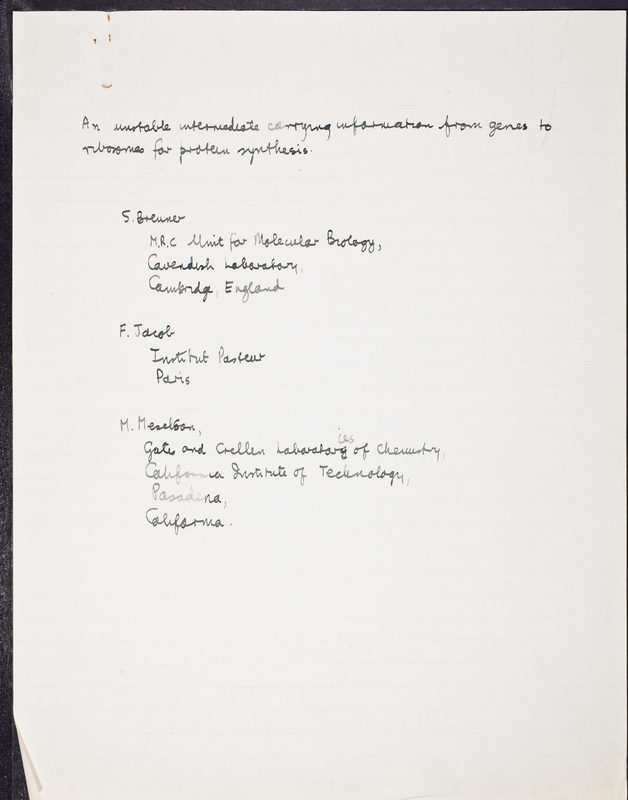 An unstable intermediate carrying information from genes to
ribosomes for protein synthesis.
S. Brenner
M.R.C Unit for Molecular Biology,
Cavendish Laboratory,
Cambridge, England
F. Jacob
Institut Pasteur
Paris
M. Meselson,
Gates and Crellen Laboratories of Chemistry,
California Institute of Technology,
Pasadena,
California.